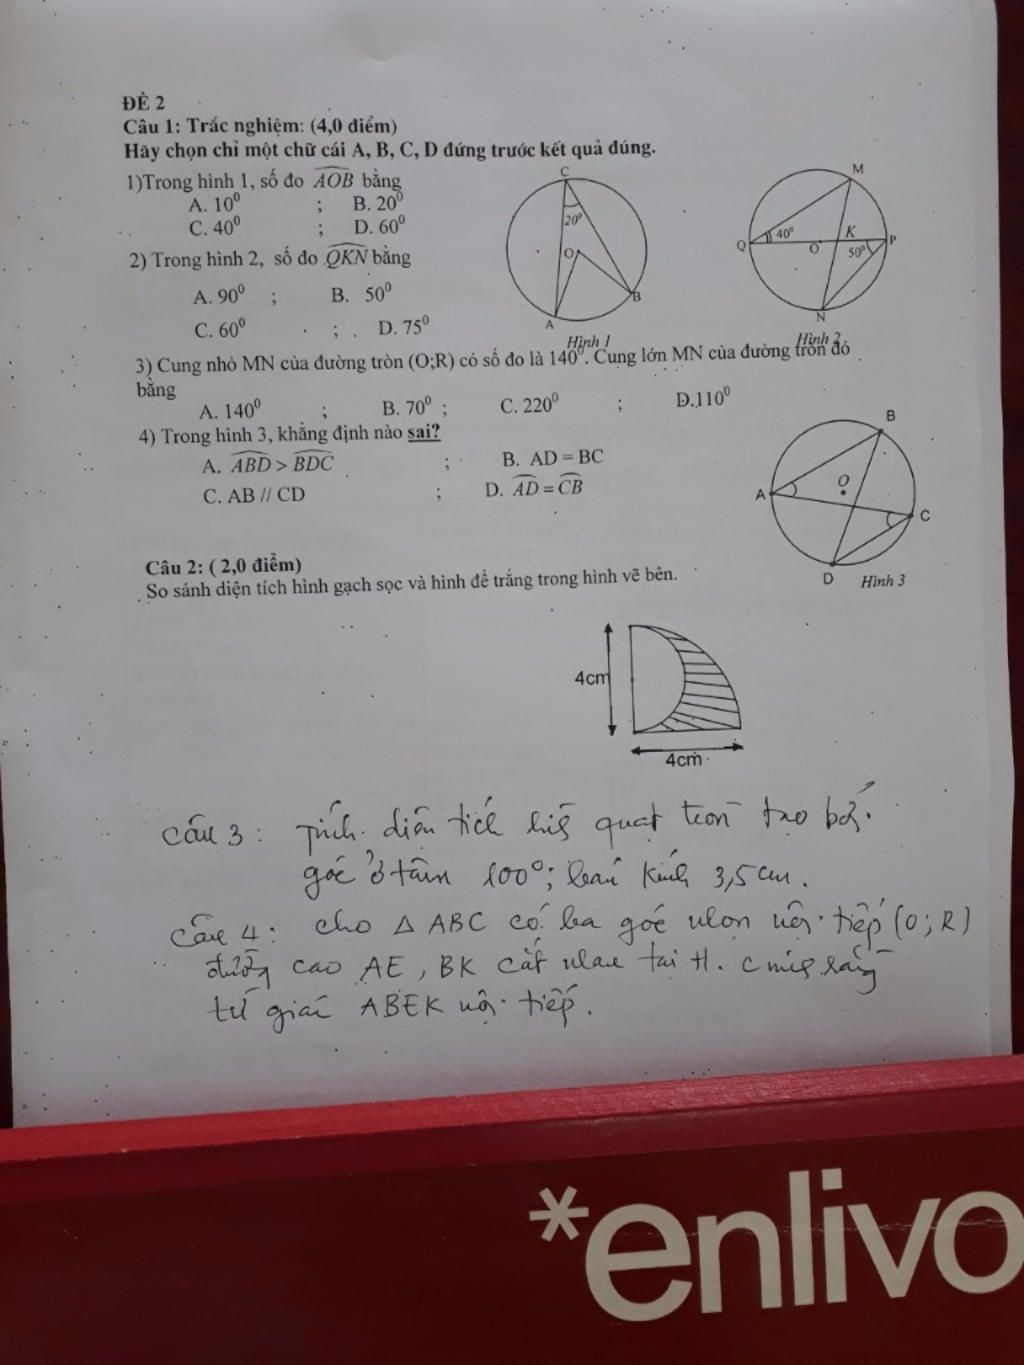 ĐỀ 2
Câu 1: Trắc nghiệm: (4,0 điểm)
Hãy chọn chỉ một chữ cái A, B, C, D đứng trước kết quả đúng.
1)Trong hình 1, số đo AOB bằng
A. 10⁰ ; B. 20⁰
C. 40⁰ ; D. 60⁰
2) Trong hình 2, số đo QKN bằng
A. 90⁰ ; B. 50⁰
C. 60⁰ ; D. 75⁰
C
20⁰
O
B
A
Hình 1
M
Q
40⁰
O
K
P
50⁰
N
Hình 2
3) Cung nhỏ MN của đường tròn (O;R) có số đo là 140⁰. Cung lớn MN của đường tròn đó
bằng
A. 140⁰ ; B. 70⁰ ; C. 220⁰ ; D.110⁰
4) Trong hình 3, khẳng định nào sai?
A. ABD > BDC ; B. AD = BC
C. AB // CD ; D. AD = CB
B
O
A
C
D
Hình 3
Câu 2: ( 2,0 điểm)
So sánh diện tích hình gạch sọc và hình để trắng trong hình vẽ bên.
4cm
4cm
Câu 3: Tính diện tích hình quạt tròn tạo bởi
góc ở tâm 100⁰; bán kính 3,5cm.
Câu 4: cho △ ABC có ba góc nhọn nội tiếp (O; R)
đường cao AE, BK cắt nhau tại H. Cminh rằng
tứ giác ABEK nội tiếp.
*enlivo